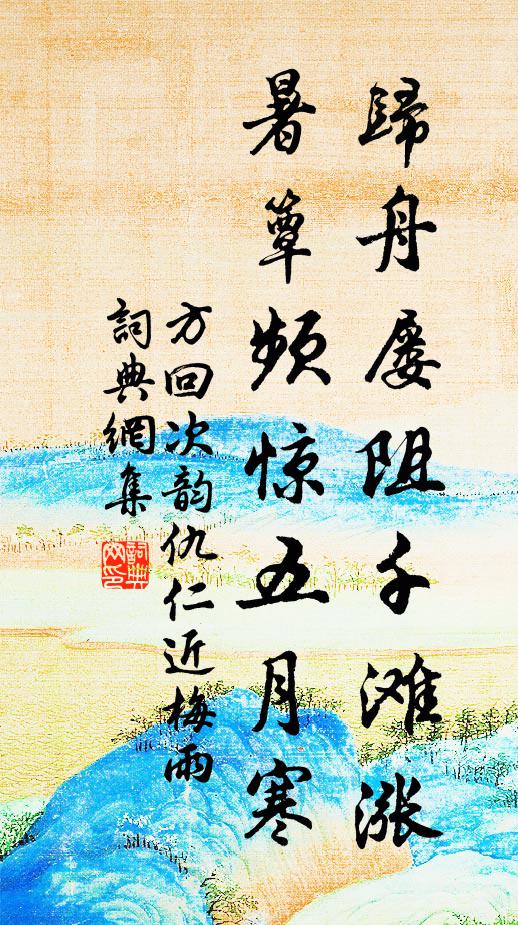 歸舟屡阻千滩漲
暑簟頻惊五月寒
方回次韵仇仁近梅雨
詞典網集
詞典网印